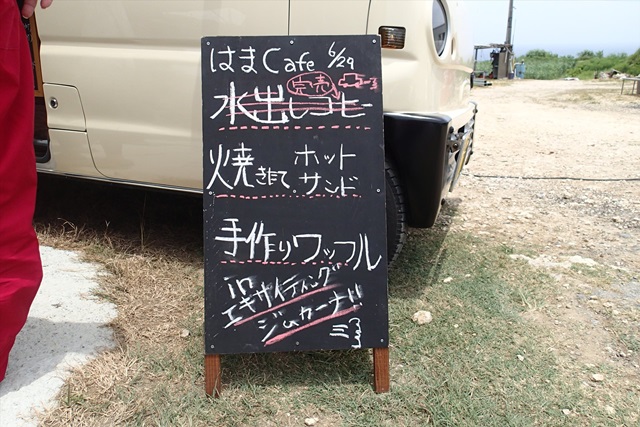 はまCafe 6/29
完売
水出しコーヒー
焼きたて ホットサンド
手作りワッフル
in
エキサイティング
ジムカーナ!!